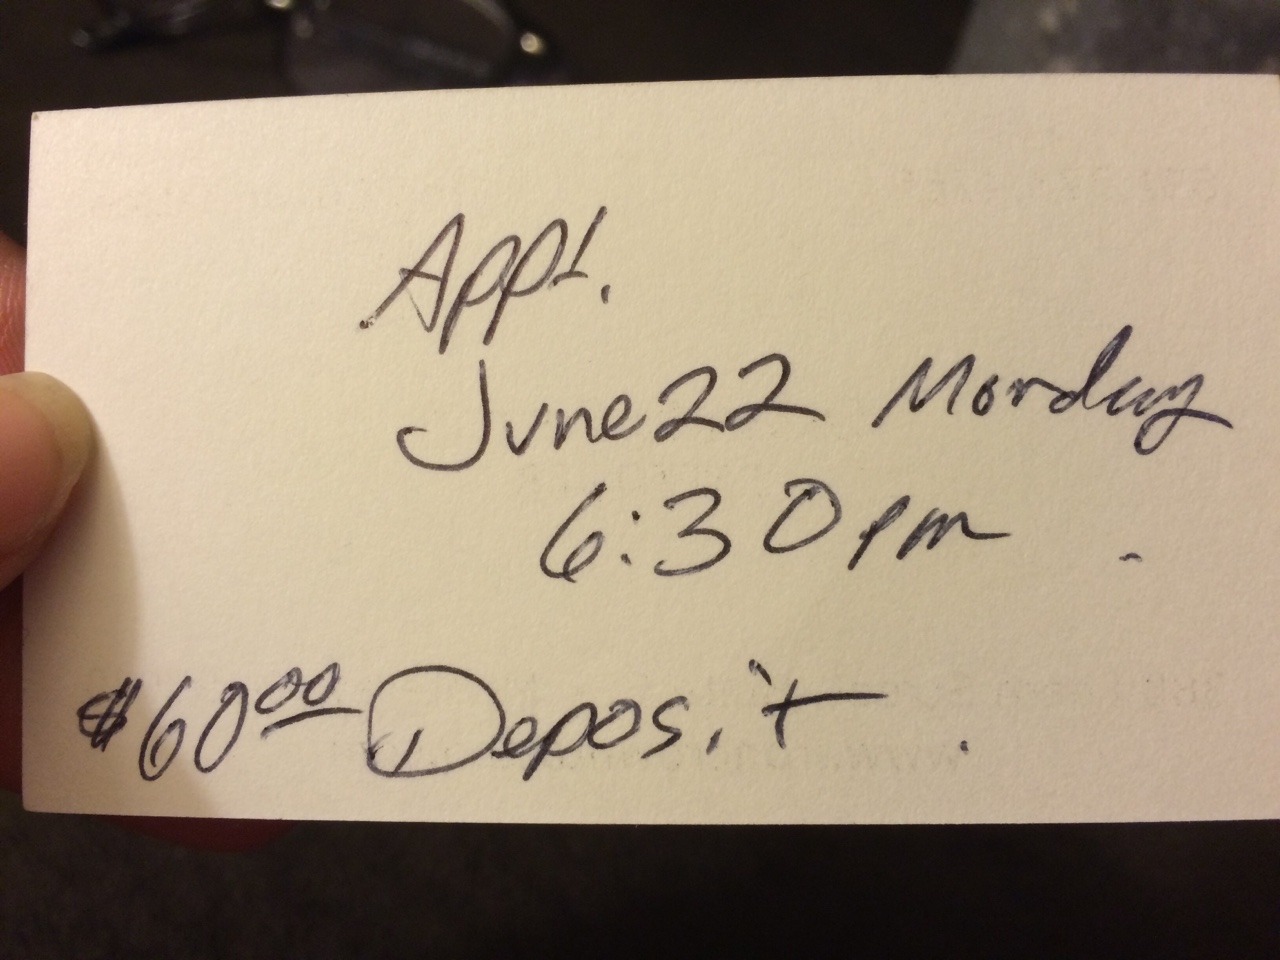 Appt.
June 22 Monday
6:30pm
$6000 Deposit